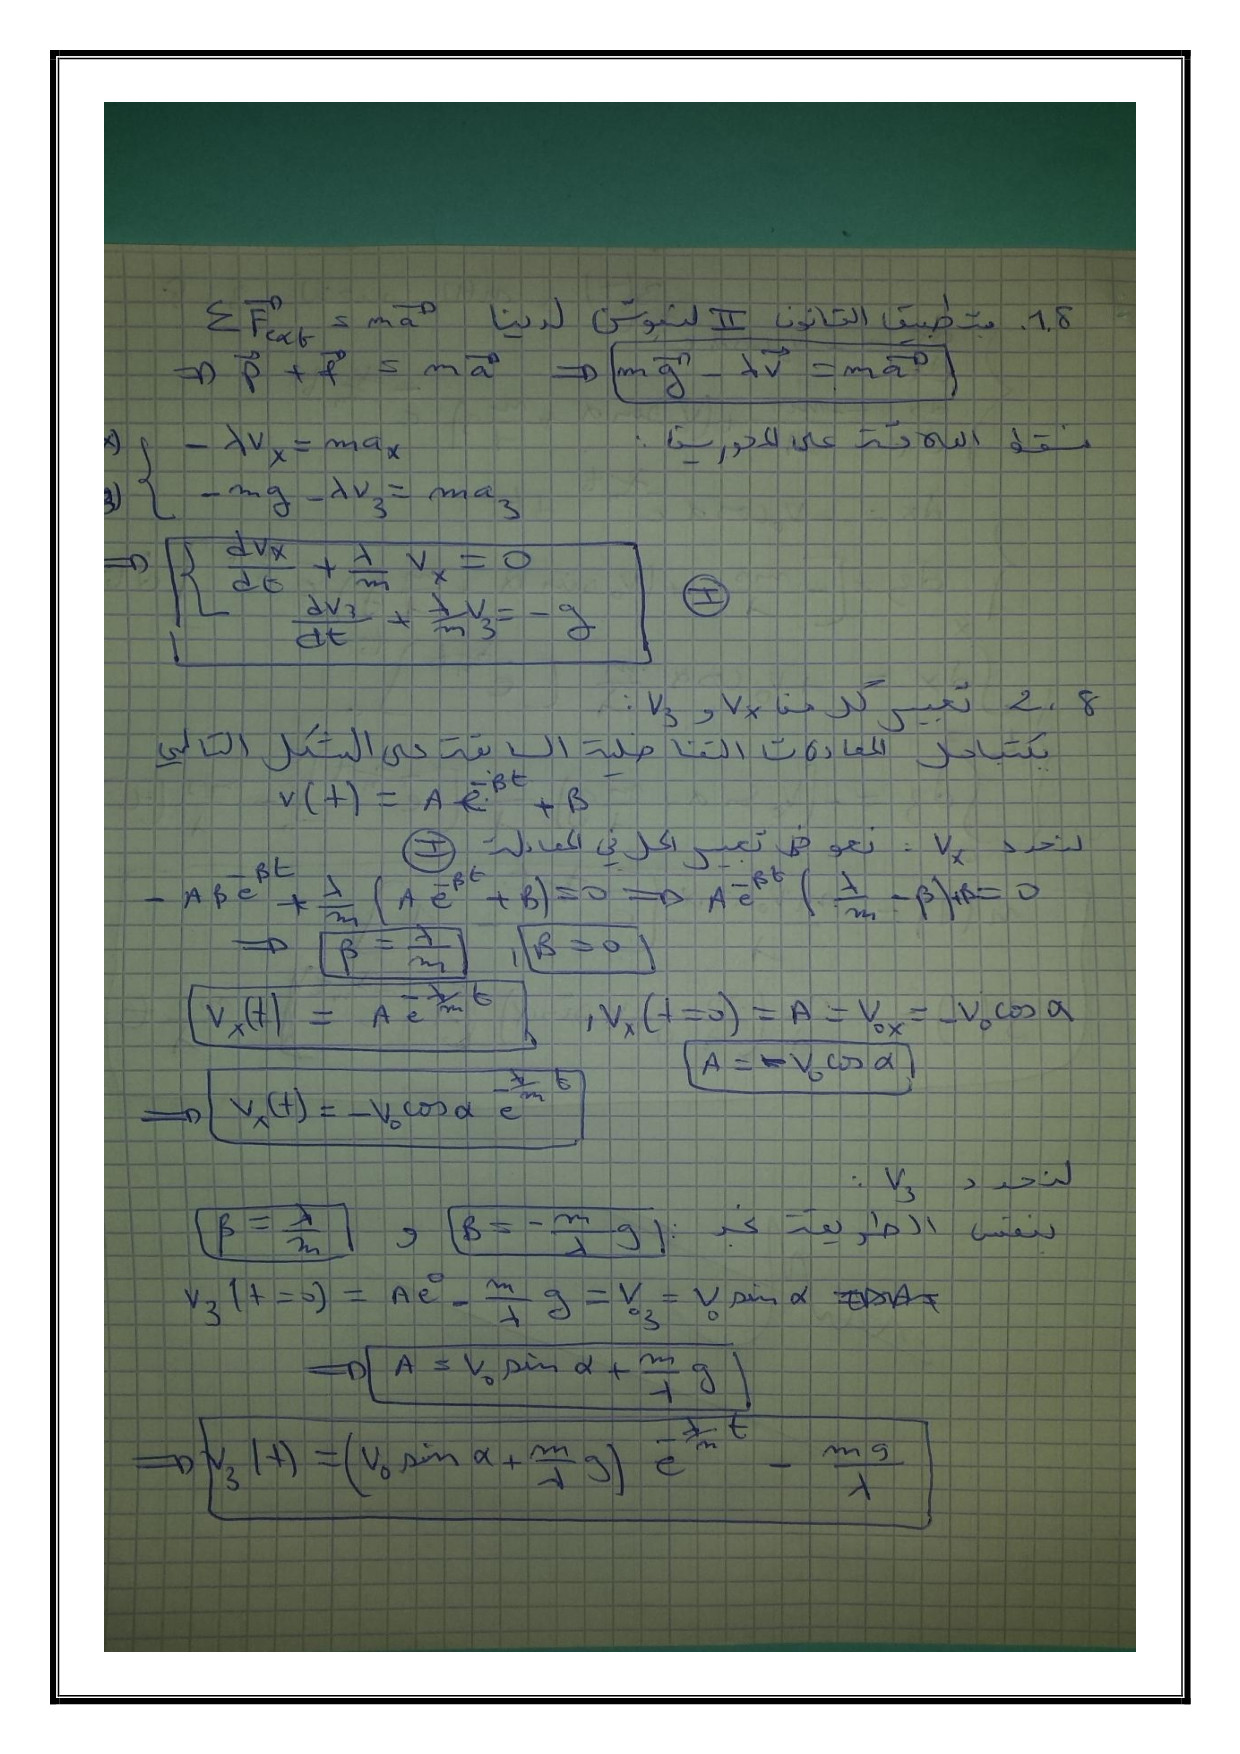 1.8. بتطبيق القانون II لنيوتن لدينا $\Sigma \vec{F}_{ext} = m\vec{a}$
$\Rightarrow \vec{p} + \vec{f} = m\vec{a} \Rightarrow m\vec{g} - \lambda\vec{v} = m\vec{a}$
نسقط العلاقة على المحورين :
x) $-\lambda v_x = m a_x$
3) $-mg - \lambda v_3 = m a_3$
$\Rightarrow \frac{dv_x}{dt} + \frac{\lambda}{m} v_x = 0$
$\frac{dv_3}{dt} + \frac{\lambda}{m} v_3 = -g$ (I)
2.8 تعبير كل من $v_x$ و $v_3$ :
المعادلات التفاضلية السابقة على الشكل التالي
$v(t) = A e^{-\beta t} + B$
لنحدد $v_x$ : نعوض تعبير الحل في المعادلة (I)
$-A\beta e^{-\beta t} + \frac{\lambda}{m} (A e^{-\beta t} + B) = 0 \Rightarrow A e^{-\beta t} (\frac{\lambda}{m} - \beta) + B = 0$
$\Rightarrow \beta = \frac{\lambda}{m} , B = 0$
$v_x(t) = A e^{-\frac{\lambda}{m} t} , v_x(t=0) = A = v_{0x} = -v_0 \cos\alpha$
$A = -v_0 \cos\alpha$
$\Rightarrow v_x(t) = -v_0 \cos\alpha \, e^{-\frac{\lambda}{m} t}$
لنحدد $v_3$ :
بنفس الطريقة نجد : $B = -\frac{m}{\lambda} g$ و $\beta = \frac{\lambda}{m}$
$v_3(t=0) = A e^0 - \frac{m}{\lambda} g = v_{03} = v_0 \sin\alpha$
$\Rightarrow A = v_0 \sin\alpha + \frac{m}{\lambda} g$
$\Rightarrow v_3(t) = (v_0 \sin\alpha + \frac{m}{\lambda} g) e^{-\frac{\lambda}{m} t} - \frac{mg}{\lambda}$